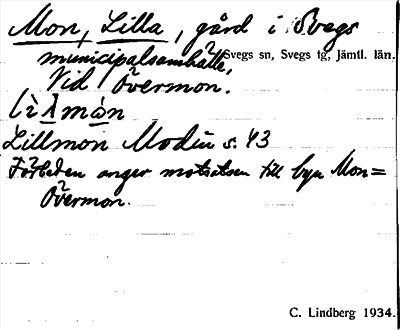 Mon, Lilla, gård i Svegs
municipalsamhälle,
Svegs sn, Svegs tg, Jämtl. län.
Vid Övermon.
lìλmòn
Lillmon Modin s. 43
Förleden anger motsatsen till byn Mon=
Övermon.
C. Lindberg 1934.